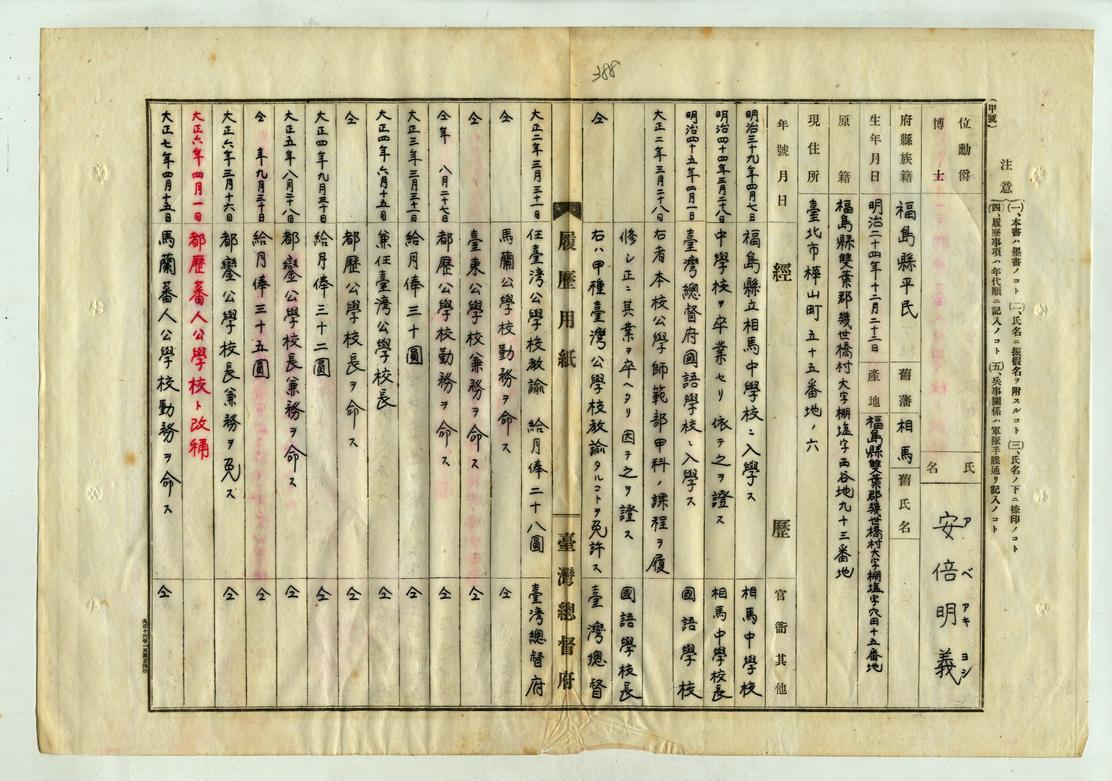 388
(甲號)
注意
(一)、本書ハ墨書ノコト (二)、氏名ニ振假名ヲ附スルコト (三)、氏名ノ下ニ捺印ノコト
(四)、履歷事項ハ年代順ニ記入ノコト (五)、兵事關係ハ軍隊手牒通リ記入ノコト
位勳爵
博士
氏名
安倍明義
アベアキヨシ
府縣族籍 福島縣平民 舊藩 相馬 舊氏名
生年月日 明治二十四年十二月二十三日 產地 福島縣雙葉郡幾世橋村大字棚塩字穴田十五番地
原籍 福島縣雙葉郡幾世橋村大字棚塩字西谷地九十三番地
現住所 臺北市樺山町五十五番地ノ六
年號月日 經歷 官衙其他
明治三十九年四月七日 福島縣立相馬中學校ニ入學ス 相馬中學校
明治四十四年三月二十八日 中學校ヲ卒業セリ依テ之ヲ證ス 相馬中學校長
明治四十五年四月一日 臺灣總督府國語學校ニ入學ス 國語學校
大正二年三月二十八日 右者本校公學師範部甲科ノ課程ヲ履
修シ正ニ其業ヲ卒ヘタリ因テ之ヲ證ス 國語學校長
仝 右ハ甲種臺灣公學校教諭タルコトヲ免許ス 臺灣總督
履歷用紙 臺灣總督府
大正二年三月三十一日 任臺灣公學校教諭 給月俸二十八圓 臺灣總督府
仝 馬蘭公學校勤務ヲ命ス 仝
仝 臺東公學校兼務ヲ命ス 仝
仝年 八月二十七日 都歷公學校勤務ヲ命ス 仝
大正三年三月三十一日 給月俸三十圓 仝
大正四年六月十五日 兼任臺灣公學校長 仝
仝 都歷公學校長ヲ命ス 仝
大正四年九月三十日 給月俸三十二圓 仝
大正五年八月二十八日 都鑾公學校長兼務ヲ命ス 仝
仝 年九月三十日 給月俸三十五圓 仝
大正六年三月十六日 都鑾公學校長兼務ヲ免ス 仝
大正六年四月一日 都歷蕃人公學校ト改稱
大正七年四月十五日 馬蘭蕃人公學校勤務ヲ命ス 仝